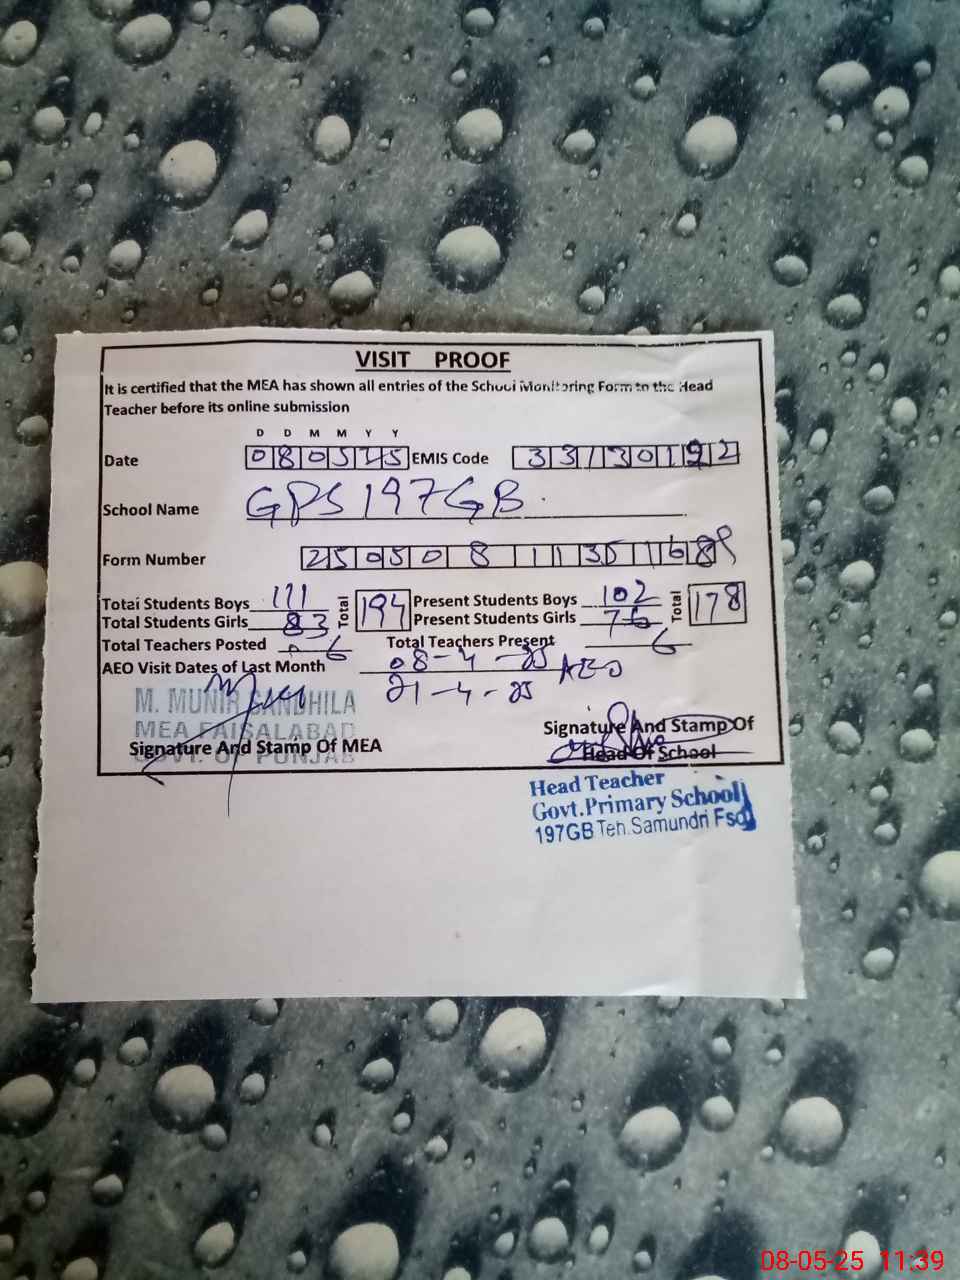 VISIT PROOF
It is certified that the MEA has shown all entries of the School Monitoring Form to the Head
Teacher before its online submission
D D M M Y Y
Date 080525 EMIS Code 33130192
School Name GPS 197GB
Form Number 25050811351168
Total Students Boys 111 Total 194 Present Students Boys 102 Total 178
Total Students Girls 83 Present Students Girls 76
Total Teachers Posted 6 Total Teachers Present 6
AEO Visit Dates of Last Month 08-4-25 AEO
21-4-25
M. MUNIR SANDHILA
MEA FAISALABAD
GOVT. OF PUNJAB
Signature And Stamp Of MEA
Signature And Stamp Of
Head Of School
Head Teacher
Govt.Primary School
197GB Teh.Samundri Fsd
08-05-25 11:39